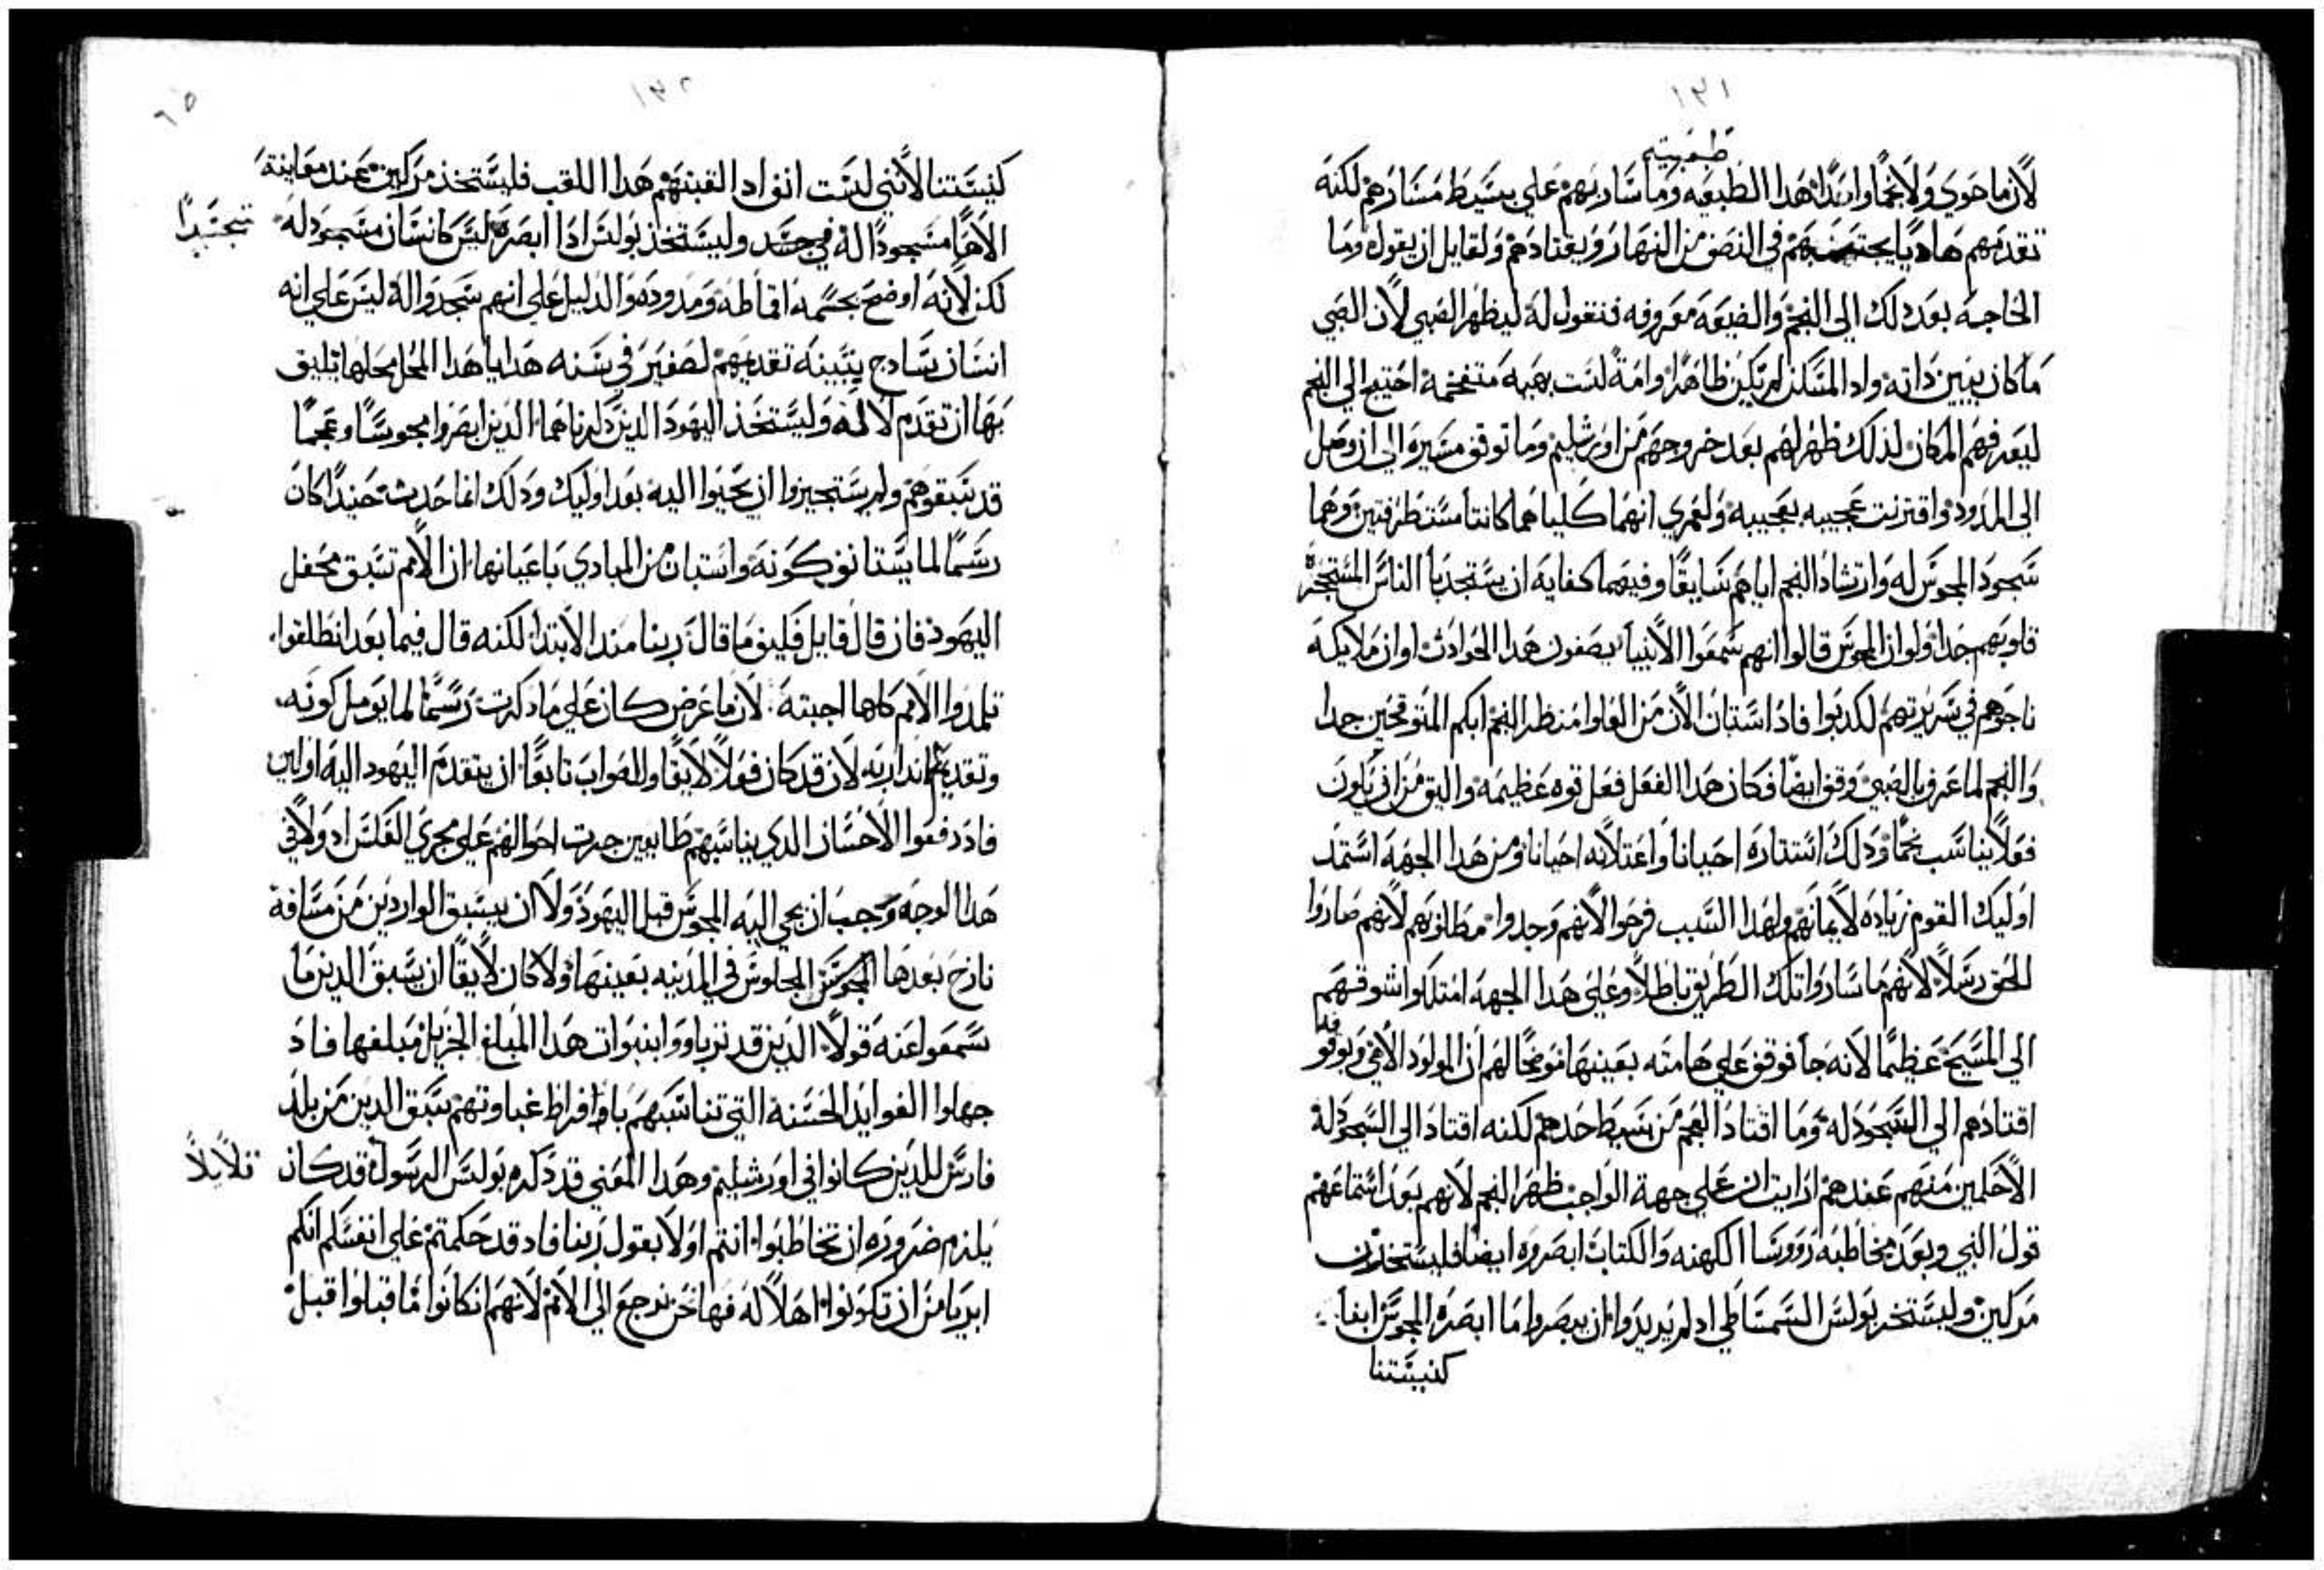 ١٣١
طبيعتهم
لان ما حوي ولا نجماً واحدًا هذا الطبيعه وما سار بهم علي بسيط مسارهم لكنه
تقدمهم هاديًا يجتذبهم في النصف من النهار ويقتادهم ولقايل ان يقول وما
الحاجه بعد ذلك الى النجم والضيعه معروفه فنقول له ليظهر الصبي لان الصبي
ما كان يبين ذاته واد المسكن لم يكن ظاهرًا وامه لست بهيه متفخمه احتيج الي النجم
ليعرفهم المكان لذلك ظهر لهم بعد خروجهم من اورشليم وما توقف مسيره الى ان وصل
الى المدود واقترنت عجيبه بعجيبه ولعمري انهما كلياهما كانتا مستطرفتين وهما
سجود المجوس له وارشاد النجم اياهم سايقًا وفيهما كفايه ان يستجدبا الناس المتحجره
قلوبهم جدا ولو ان المجوس قالوا انهم سمعوا الانبيا يصفون هدا الحوادث او ان ملايكه
ناجوهم في سريرتهم لكدبوا فاد استبان الان من العلوا منظر النجم ابكم المتوقحين جدا
والنجم لما عرف بالصبي وقف ايضا فكان هدا الفعل فعل قوه عظيمه واليق من ان يكون
فعلاً يناسب نجمًا ودلك استتاره احيانا واعتلانه احيانا ومن هدا الجهه استمد
اوليك القوم زياده لايمانهم ولهدا السبب فرحوا لانهم وجدوا مطلوبهم لانهم صاروا
للحق رسلاً لانهم ما ساروا تلك الطريق باطلاً وعلى هدا الجهه امتلاوا شوقهم
الي المسيح عظيمًا لانه جا فوقف علي هامته بعينها موضحًا لهم ان المولود الاهي وبوقوفه
اقتادهم الي السجود له وما اقتاد العجم من بسيط حدهم لكنه اقتاد الي السجود له
الاحلمين منهم عندهم ارايت ان علي جهة الواجب ظهر النجم لانهم بعد استماعهم
قول النبي وبعد مخاطبه رووسا الكهنه والكتاب ابصروه ايضا فليستخذ من
مركلين وليستخذ بولس السمساطي اد لم يريدوا ان يبصروا ما ابصره المجوس ابنا
كنيستنا
١٣٢
٦٥
كنيستنا لانني لست انف ادا القبتهم هدا اللقب فليستخذ مركلين عند معاينة
الاهًا مسجودًا له في جسد وليستخذ بولس ادا ابصره ليس كانسان مسجود له
تجسدًا
لكن لانه اوضح بجسمه اقماطه ومدوده والدليل علي انهم سجدوا له ليس علي انه
انسان سادج يتبينه تقديمهم لصغير في سنه هدايا هدا المحل محلها يليق
بها ان تقدم لاله وليستخذ اليهود الدين دكرناهم الدين ابصروا مجوسًا وعجمًا
قد سبقوهم ولم يستجيزوا ان يحيوا اليه بعد اوليك ودلك انما حدث حينيدًا كان
رسمًا لما يستانف كونه واستبان من المبادي باعيانها ان الامم تسبق محفل
اليهود فان قال قايل فكيف ما قال ربنا مند الابتدا لكنه قال فيما بعد انطلقوا
تلمدوا الامم كلها اجبته لان ما عرض كان علي ما دكرت رسمًا لما يومل كونه
وتقديم اندار به لان قد كان فعلاً لايقًا وللصواب تابعًا ان يتقدم اليهود اليه اولين
فاد دفعوا الاحسان الدي يناسبهم طايعين جرت احوالهم علي مجري العكس اد ولا في
هدا الوجه وجب ان يجي اليه المجوس قبل اليهود ولا ان يسبق الواردين من مسافة
نازح بعدها المجوس الجلوس في المدينه بعينها ولا كان لايقًا ان يسبق الدين ما
سمعوا عنه قولاً الدين قد تربوا و بنبوات هدا المبلغ الجزيل مبلغها فاد
جهلوا الفوايد الحسنه التي تناسبهم بافراط غباوتهم سبق الدين من بلد
فارس للدين كانوا في اورشليم وهدا المعني قد دكره بولس الرسول قد كان
قلايلاً
يلزم ضروره ان تخاطبوا انتم اولا بقول ربنا فاد قد حكمتم علي انفسكم انكم
ابريا من ان تكونوا اهلاً له فها نحن نرجع الي الامم لانهم ان كانوا ما قبلوا قبل